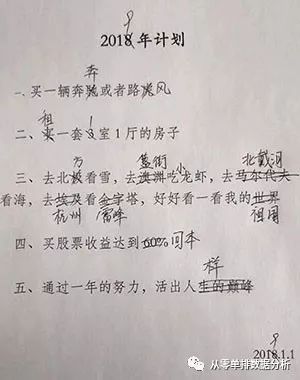 9
2018年计划
奔
一、买一辆奔驰或者路虎风
租 1
二、买一套3室1厅的房子
方 簋街 小 北戴河
三、去北极看雪，去澳洲吃龙虾，去马尔代夫
看海，去埃及看金字塔，好好看一看我的世界
杭州 雷峰 祖国
四、买股票收益达到100%回本
样
五、通过一年的努力，活出人生的巅峰
9
2018.1.1
从零单排数据分析